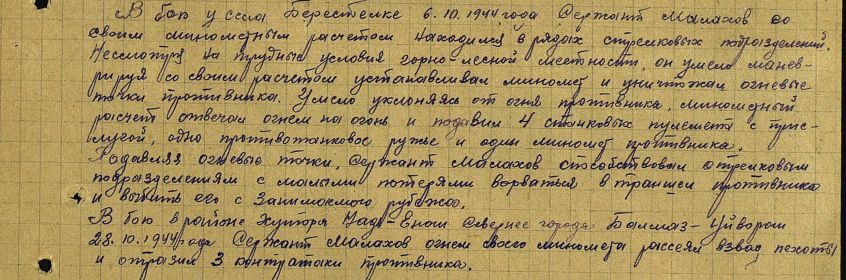 В бою у села Берестелке 6.10.1944 года Сержант Малахов со
своим минометным расчетом находился в рядах стрелковых подразделений.
Несмотря на трудные условия горно-лесной местности, он умело манев-
рируя со своим расчетом устанавливал миномет и уничтожал огневые
точки противника. Умело уклоняясь от огня противника, минометный
расчет отвечал огнем на огонь и подавил 4 станковых пулемета с прис-
лугой, одно противотанковое ружье и один миномет противника.
Подавляя огневые точки, Сержант Малахов способствовал стрелковым
подразделениям с малыми потерями ворваться в траншеи противника
и выбить его с занимаемого рубежа.
В бою в районе Хутора Надь- Севернее города Балмаз-Уйварош
28.10.1944 года Сержант Малахов огнем своего миномета рассеял взвод пехоты
и отразил 3 контратаки противника.